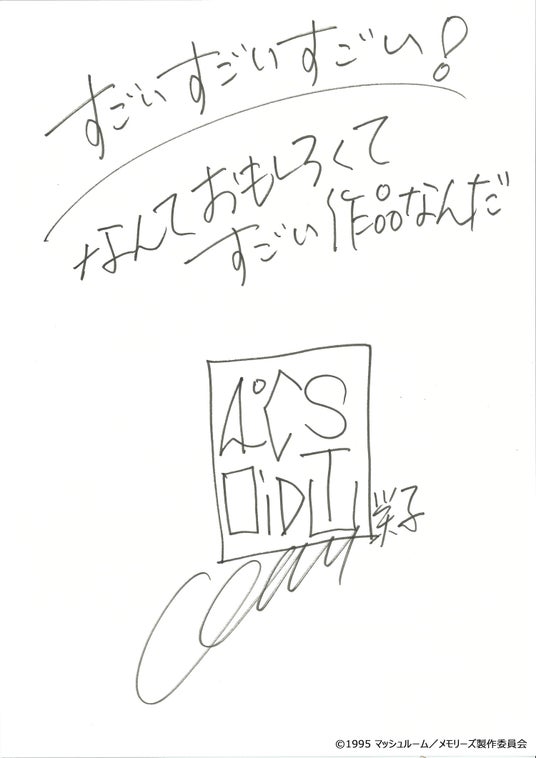 すごいすごいすごい!
なんておもしろくて
すごい作品なんだ
栄子
©1995 マッシュルーム/メモリーズ製作委員会